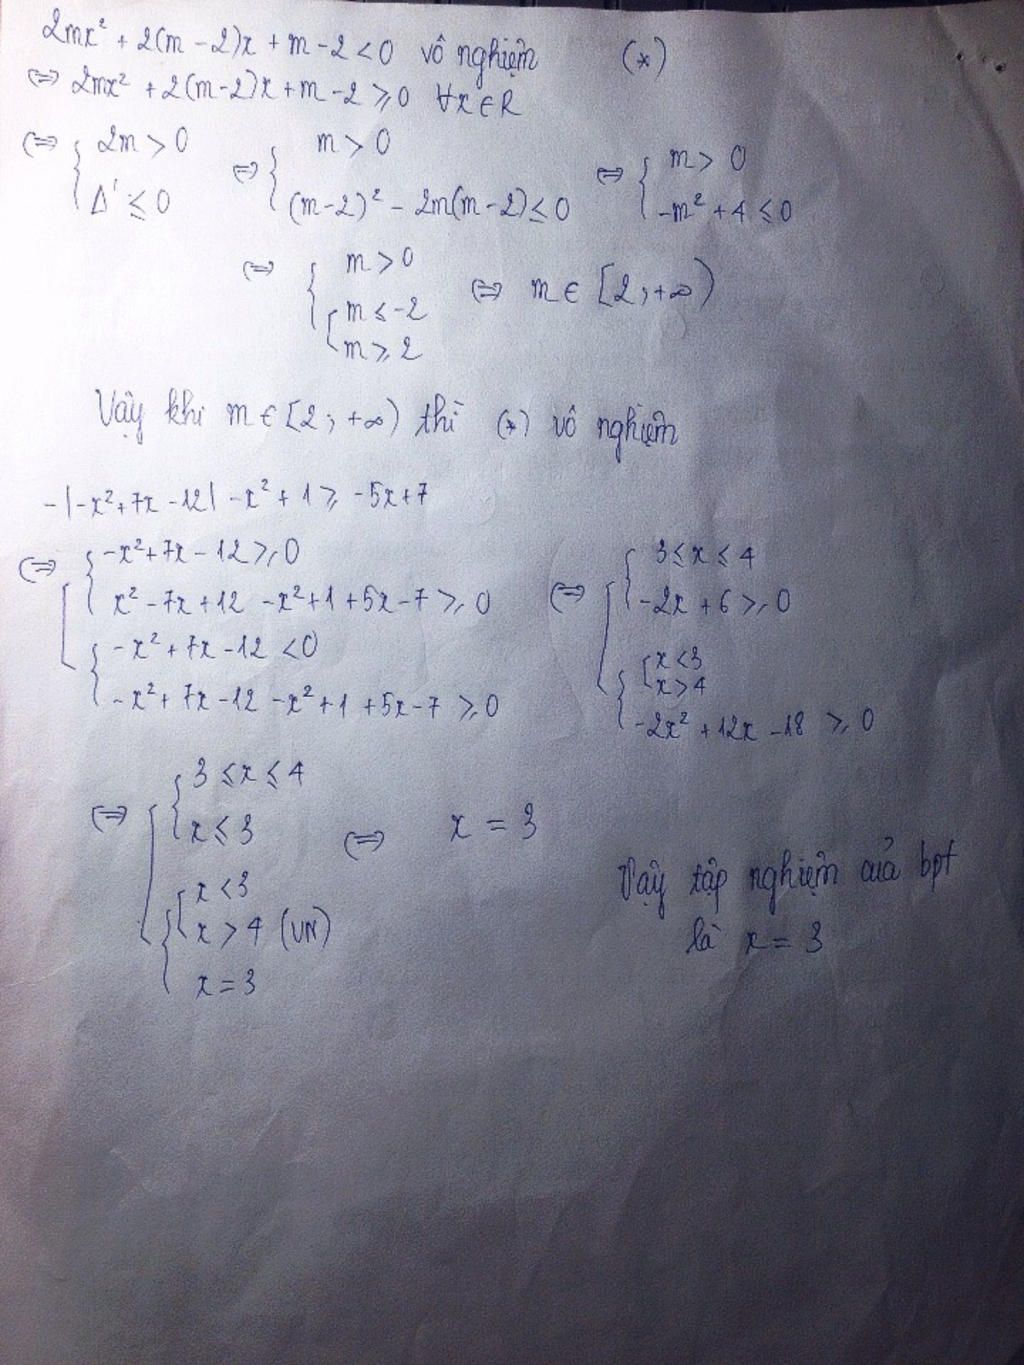 2mx² + 2(m - 2)x + m - 2 < 0 vô nghiệm (*)
⇔ 2mx² + 2(m-2)x + m - 2 ⩾ 0 ∀x ∈ R
⇔ { 2m > 0 ⇔ { m > 0 ⇔ { m > 0
Δ' ⩽ 0 (m-2)² - 2m(m-2) ⩽ 0 -m² + 4 ⩽ 0
⇔ { m > 0
[ m ⩽ -2 ⇔ m ∈ [2; +∞)
m ⩾ 2
Vậy khi m ∈ [2; +∞) thì (*) vô nghiệm
-|-x² + 7x - 12| - x² + 1 ⩾ -5x + 7
⇔ [ { -x² + 7x - 12 ⩾ 0 ⇔ [ { 3 ⩽ x ⩽ 4
x² - 7x + 12 - x² + 1 + 5x - 7 ⩾ 0 -2x + 6 ⩾ 0
{ -x² + 7x - 12 < 0 { [ x < 3
x > 4
-x² + 7x - 12 - x² + 1 + 5x - 7 ⩾ 0 -2x² + 12x - 18 ⩾ 0
⇔ [ { 3 ⩽ x ⩽ 4
x ⩽ 3 ⇔ x = 3
{ [ x < 3
x > 4 (VN)
x = 3
Vậy tập nghiệm của bpt
là x = 3